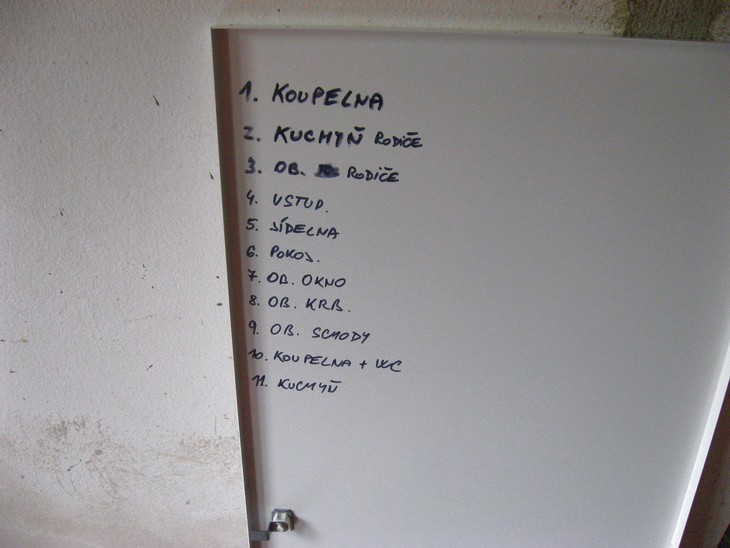 1. KOUPELNA
2. KUCHYŇ RODIČE
3. OB. RODIČE
4. VSTUP.
5. JÍDELNA
6. POKOJ.
7. OB. OKNO
8. OB. KRB.
9. OB. SCHODY
10. KOUPELNA + WC
11. KUCHYŇ